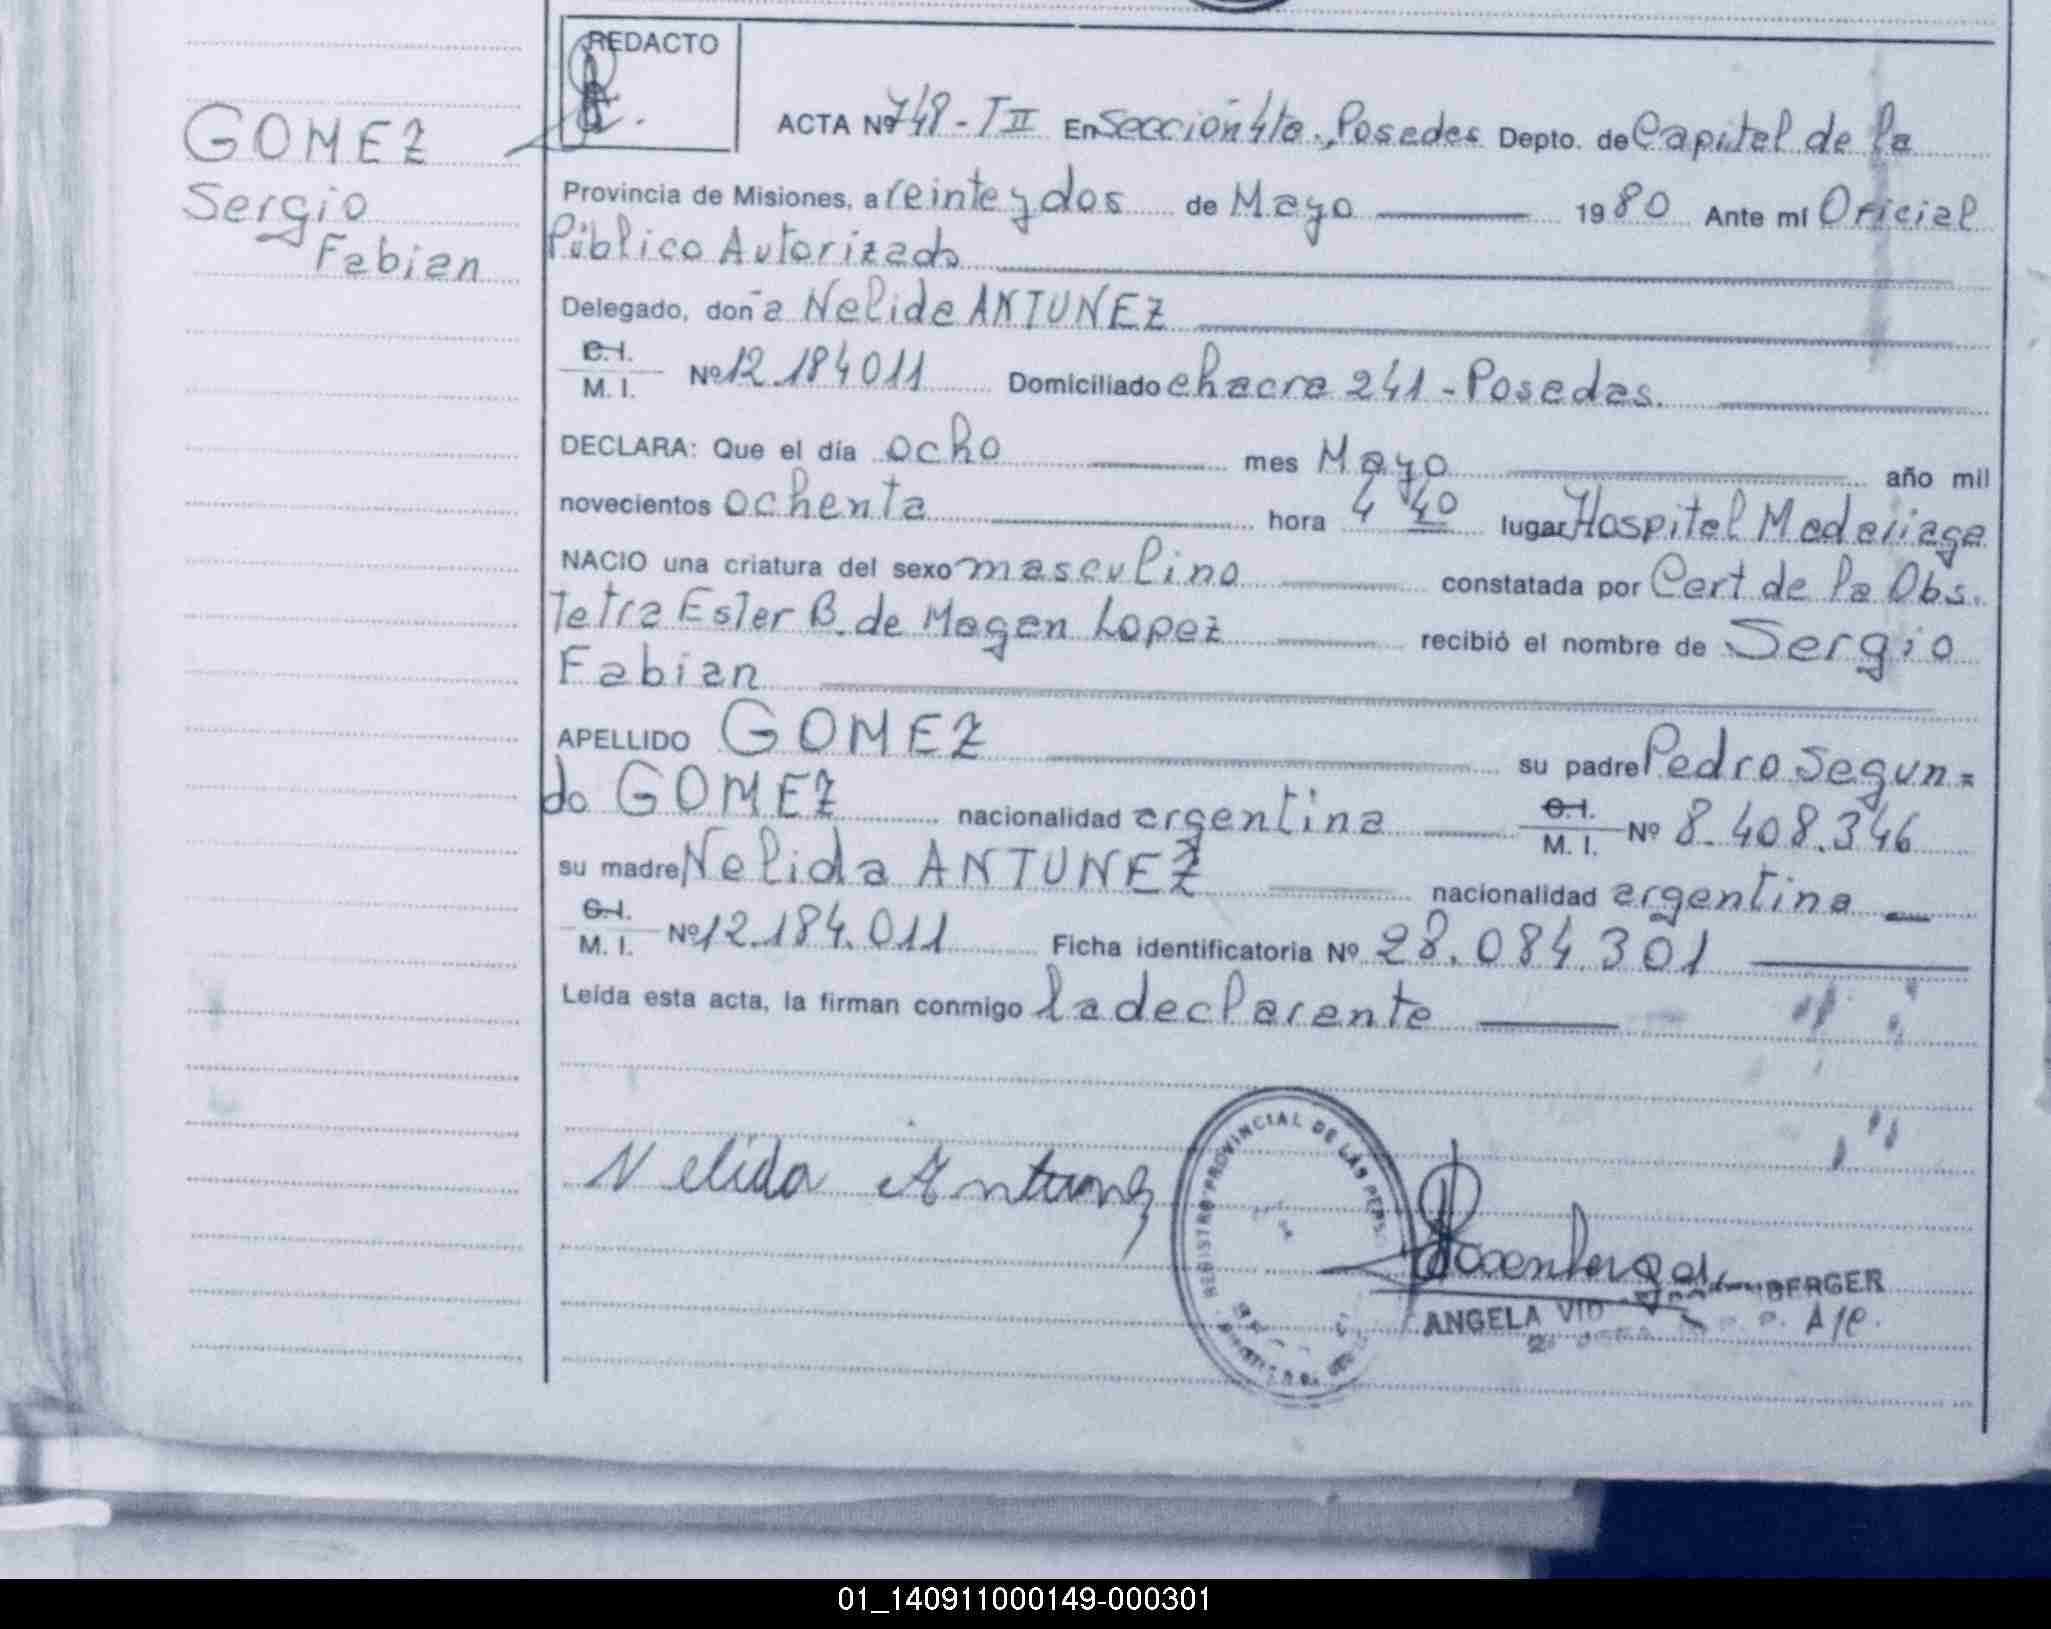 REDACTO
GOMEZ
Sergio
Fabian
ACTA Nº 748-T II En Sección 4ta., Posadas Depto. de Capital de la
Provincia de Misiones, a veinte y dos de Mayo 1980 Ante mí Oficial
Público Autorizado
Delegado, doña Nelida ANTUNEZ
C.I.
M. I. Nº 12.184011 Domiciliado chacra 241 - Posadas.
DECLARA: Que el día ocho mes Mayo año mil
novecientos ochenta hora 4 40 lugar Hospital Madariaga
NACIO una criatura del sexo masculino constatada por Cert de la Obs.
Tetra Ester B. de Magan Lopez recibió el nombre de Sergio
Fabian
APELLIDO GOMEZ su padre Pedro Segun=
do GOMEZ nacionalidad argentina C.I.
M. I. Nº 8.408.346
su madre Nelida ANTUNEZ nacionalidad argentina
C.I.
M. I. Nº 12.184.011 Ficha identificatoria Nº 28.084.301
Leída esta acta, la firman conmigo la declarante
Nelida Antunez
REGISTRO PROVINCIAL DE LAS PERS
BERGER
ANGELA
01_140911000149-000301